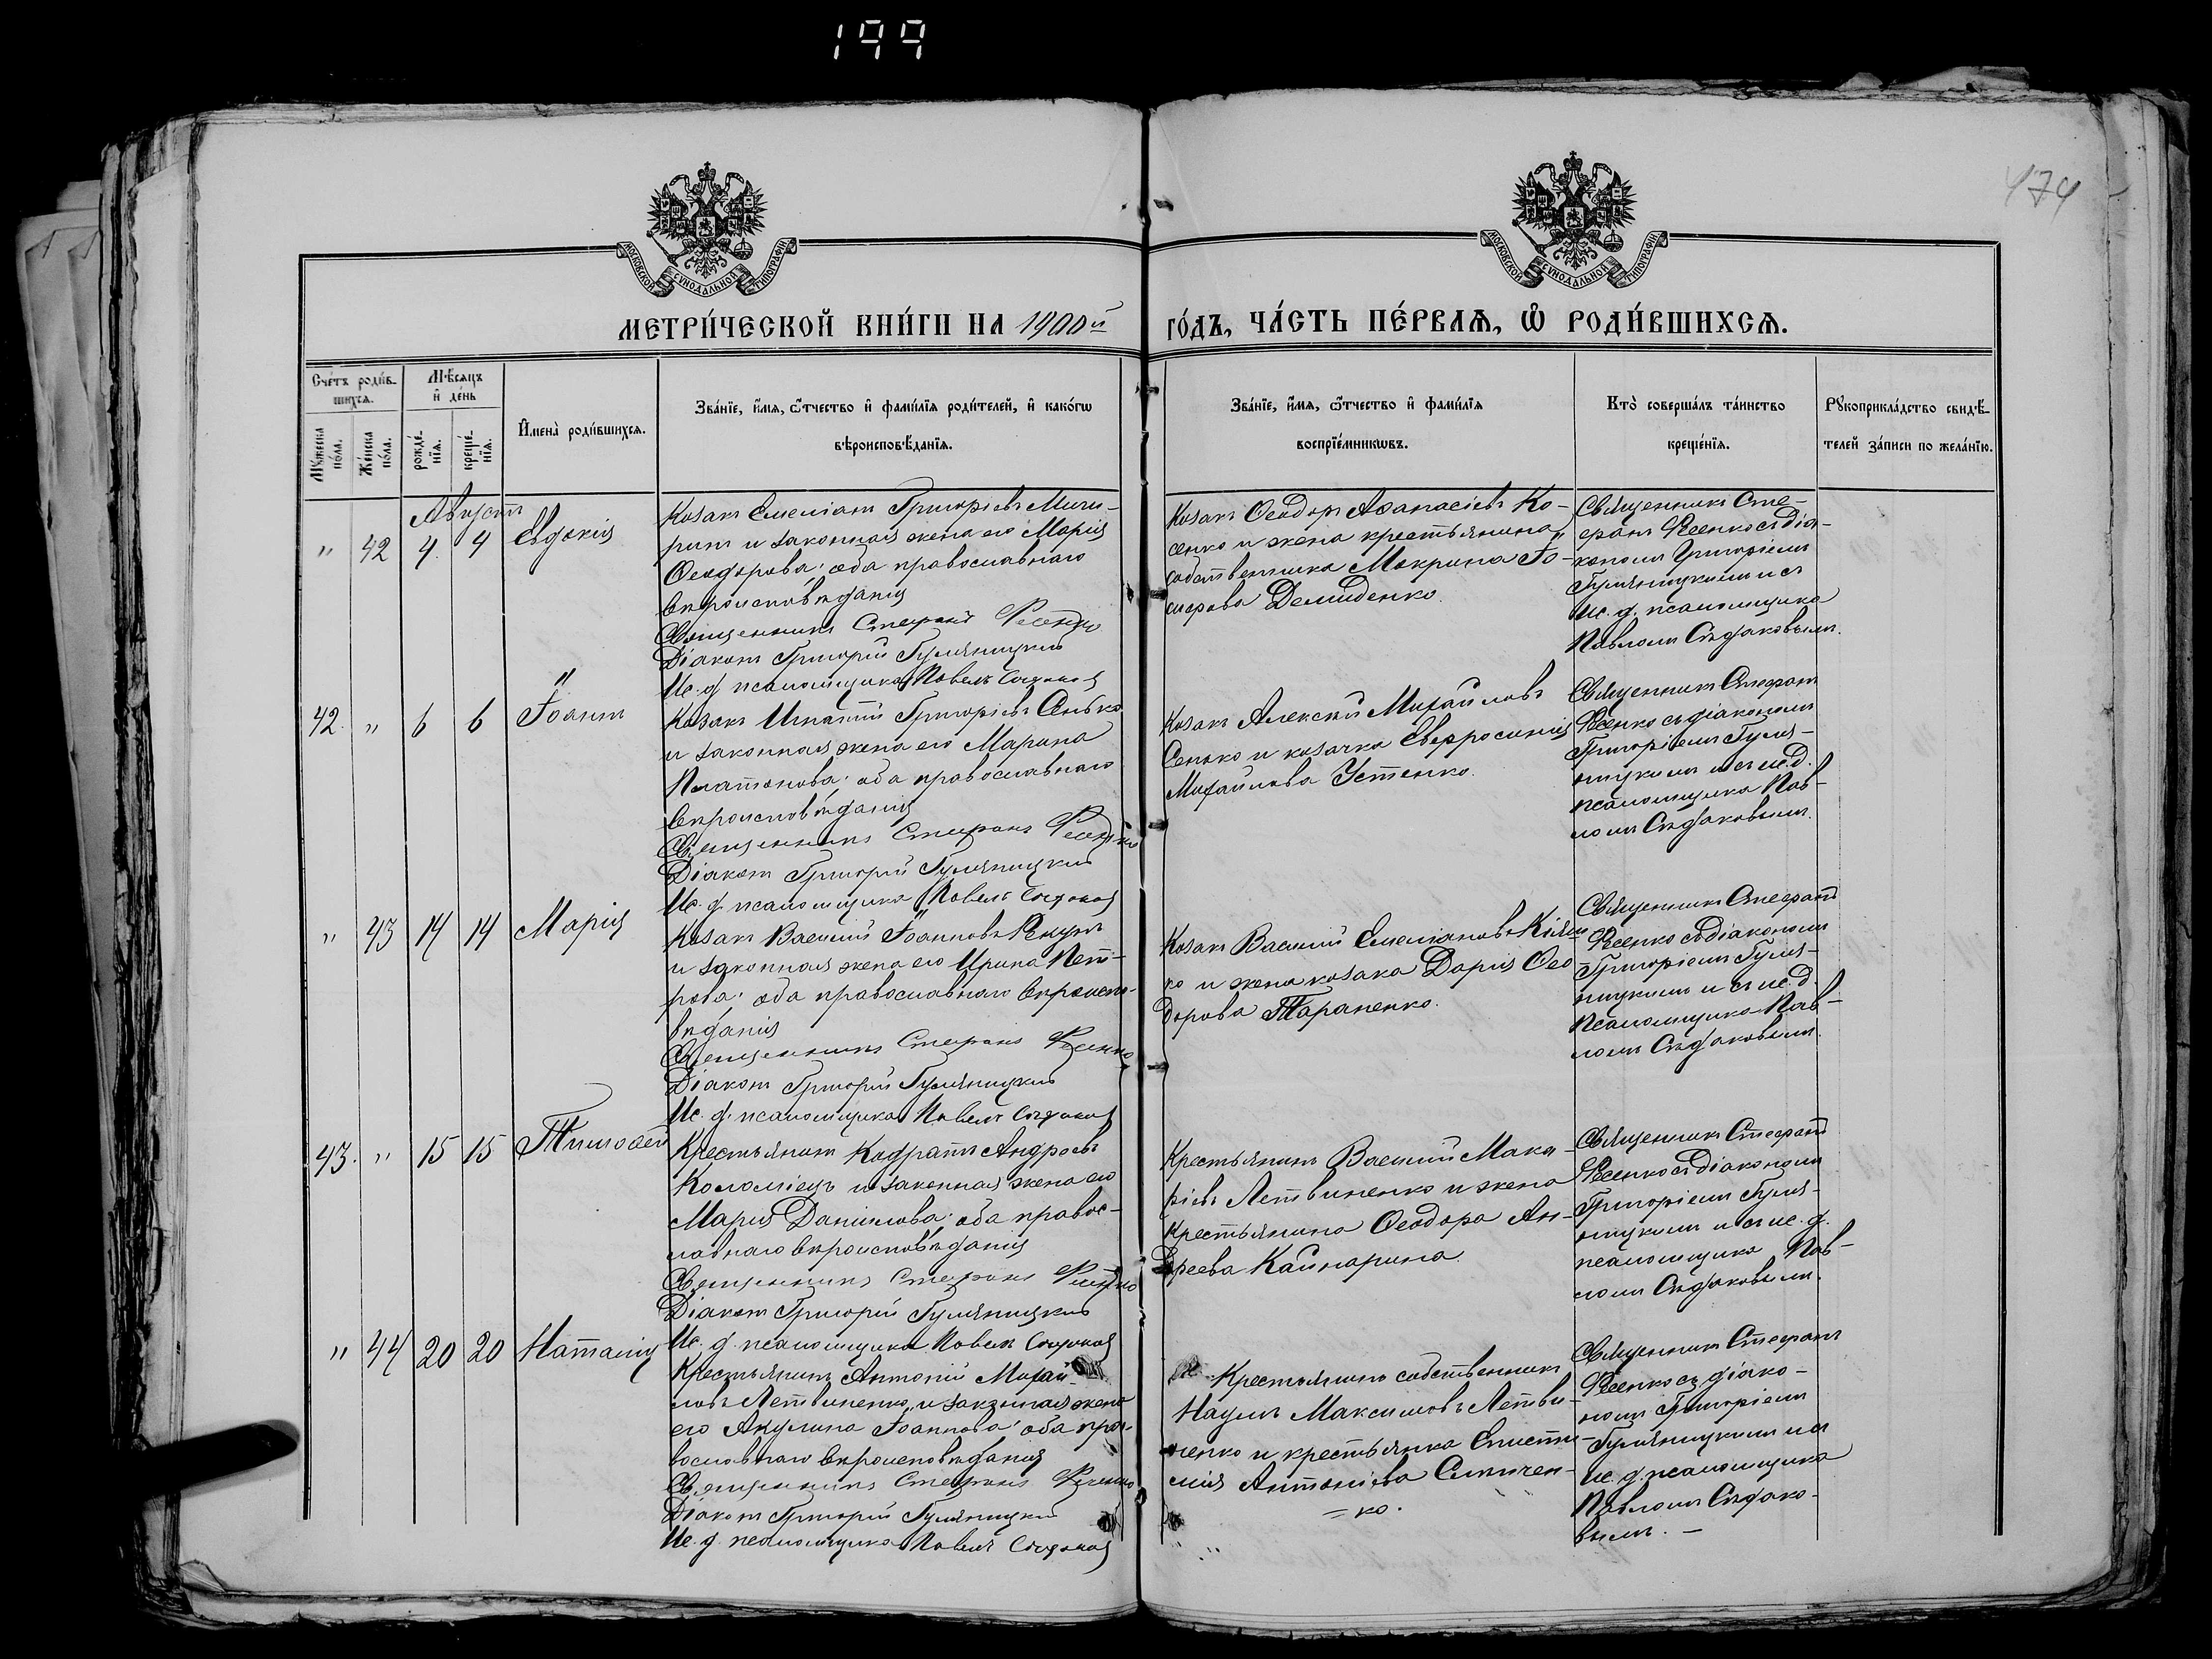 199
474
МОСКОВСКОЙ СѴНОДАЛЬНОЙ ТИПОГРАФІИ
МОСКОВСКОЙ СѴНОДАЛЬНОЙ ТИПОГРАФІИ
МЕТРИ́ЧЕСКОЙ КНИ́ГИ НА 1900й ГО́ДЪ, ЧА́СТЬ ПЕ́РВАѦ, Ѽ РОДИ́ВШИХСѦ.
Сче́тъ роди́вшихсѧ.
Мꙋ́жеска по́ла.
Же́нска по́ла.
Мѣ́сяцъ и҆ де́нь
рожде́нїѧ.
креще́нїѧ.
И҆мена̀ роди́вшихсѧ.
Зва́нїе, и҆́мѧ, ѻ҆́тчество и҆ фами́лїѧ роди́телей, и҆ како́гѡ
вѣроисповѣ́данїѧ.
Зва́нїе, и҆́мѧ, ѻ҆́тчество и҆ фами́лїѧ
воспрїе́мникѡвъ.
Кто̀ соверша́лъ та́инство
креще́нїѧ.
Рꙋкоприкла́дство свидѣ́-
телей за́писи по жела́нїю.
Августъ
" 42 4. 4 Евдокія
Козакъ Емеліанъ Григоріевъ Мичи-
ринъ и законная жена его Марія
Ѳеодорова; оба православнаго
вѣроисповѣданія
Священникъ Стефанъ Фесенко
Діаконъ Григорій Гумяницкій
Ис. д. псаломщика Павелъ Сѣдаковъ
Козакъ Ѳеодоръ Аѳанасіевъ Ко-
сенко и жена крестьянина
собственника Макрина Іо-
сифова Демиденко.
Священникъ Сте-
фанъ Фесенко съ діа-
кономъ Григоріемъ
Гумяницкимъ и съ
ис. д. псаломщика
Павломъ Сѣдаковымъ.
42. " 6 6 Іоаннъ
Козакъ Игнатій Григоріевъ Сенько
и законная жена его Марина
Платонова; оба православнаго
вѣроисповѣданія
Священникъ Стефанъ Фесенко
Діаконъ Григорій Гумяницкій
Ис. д. псаломщика Павелъ Сѣдаковъ
Козакъ Алексій Михайловъ
Сенько и козачка Евфросинія
Михайлова Устенко.
Священникъ Стефанъ
Фесенко съ діакономъ
Григоріемъ Гумя-
ницкимъ и съ ис. д.
псаломщика Пав-
ломъ Сѣдаковымъ.
" 43 14 14 Марія
Козакъ Василій Іоанновъ
и законная жена его Ирина Пет-
рова; оба православнаго вѣроиспо-
вѣданія
Священникъ Стефанъ Фесенко
Діаконъ Григорій Гумяницкій
Ис. д. псаломщика Павелъ Сѣдаковъ
Козакъ Василій Емеліановъ
ко и жена козака Дарія Ѳео-
дорова Тараненко.
Священникъ Стефанъ
Фесенко съ діакономъ
Григоріемъ Гумя-
ницкимъ и съ ис. д.
псаломщика Пав-
ломъ Сѣдаковымъ.
43. " 15 15 Тимоѳей
Крестьянинъ Кодратъ Андреевъ
Коломіецъ и законная жена его
Марія Даніилова; оба правос-
лавнаго вѣроисповѣданія
Священникъ Стефанъ Фесенко
Діаконъ Григорій Гумяницкій
Ис. д. псаломщика Павелъ Сѣдаковъ
Крестьянинъ Василій Мака-
ріевъ Летвиненко и жена
крестьянина Ѳеодора Ан-
дреева Кайнарина.
Священникъ Стефанъ
Фесенко съ діакономъ
Григоріемъ Гумя-
ницкимъ и съ ис. д.
псаломщика Пав-
ломъ Сѣдаковымъ.
" 44 20 20 Наталія
Крестьянинъ Антоній Михай-
ловъ Летвиненко и законная жена
его Акулина Іоаннова; оба пра-
вославнаго вѣроисповѣданія
Священникъ Стефанъ Фесенко
Діаконъ Григорій Гумяницкій
Ис. д. псаломщика Павелъ Сѣдаковъ
Крестьянинъ собственникъ
Наумъ Максимовъ Летви-
ненко и крестьянка Еписти-
мія Антоніева
= ко.
Священникъ Стефанъ
Фесенко съ діако-
номъ Григоріемъ
Гумяницкимъ и съ
ис. д. псаломщика
Павломъ Сѣдако-
вымъ. —